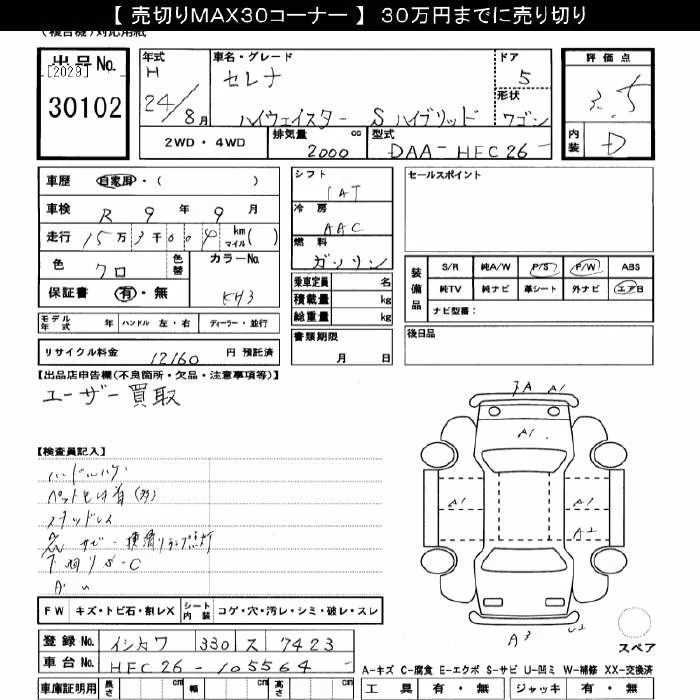 【 売切りMAX30コーナー 】 30万円までに売り切り
(複合機)対応用紙
出品No. [2029]
30102
年式 H 24/8月
車名・グレード セレナ
ハイウェイスター Sハイブリッド
ドア 5
形状 ワゴン
評価点 3.5
内装 D
2WD・4WD
排気量 2000 cc
型式 DAA-HFC26-
車歴 自家用・( )
車検 R 9年 9月
走行 15万3千00 km マイル( )
色 クロ 色替
カラーNo. KH3
保証書 有・無
シフト IAT
冷房 AAC
燃料 ガソリン
乗車定員 名
積載量 kg
総重量 kg
セールスポイント
装備品 S/R 純A/W P/S P/W ABS
純TV 純ナビ 革シート 外ナビ エアB
ナビ型番:
モデル年式 年 ハンドル 左・右 ディーラー・並行
リサイクル料金 12160 円 預託済
書類期限 月 日
後日品
【出品店申告欄(不良箇所・欠品・注意事項等)】
ユーザー買取
【検査員記入】
ハンドルハゲ
ペット毛
スタッドレス
サビ
ランプ点灯
下廻りS・C
FW キズ・トビ石・割レX シート内装 コゲ・穴・汚レ・シミ・破レ・スレ
3A A1
A1
A1
A1
A2
A3 U2
スペア
登録No. イシカワ 330 ス 7423
車台No. HFC26-105564
A-キズ C-腐食 E-エクボ S-サビ U-凹ミ W-補修 XX-交換済
車庫証明用 長さ cm 幅 cm 高さ cm
工具 有・無 ジャッキ 有・無